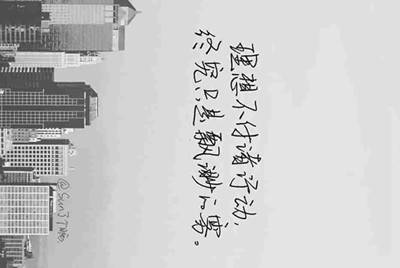 理想不付诸行动，
终究只是飘渺的雾。